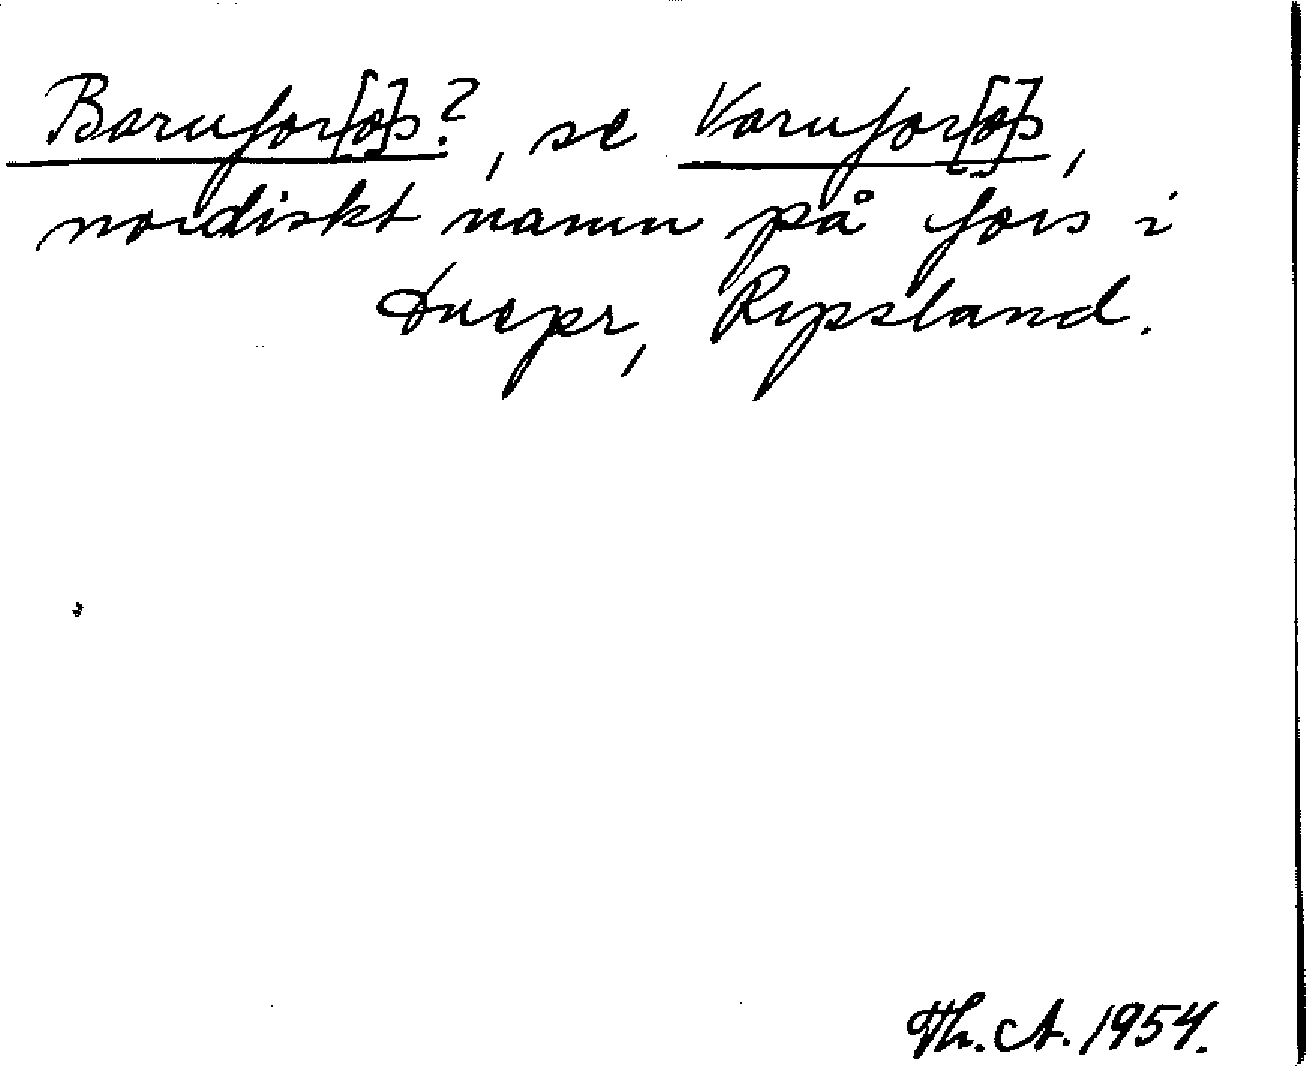 Barufor[o]s?, se Varufor[o]s,
nordiskt namn på fors i
Dnepr, Ryssland.
Th. A. 1954.